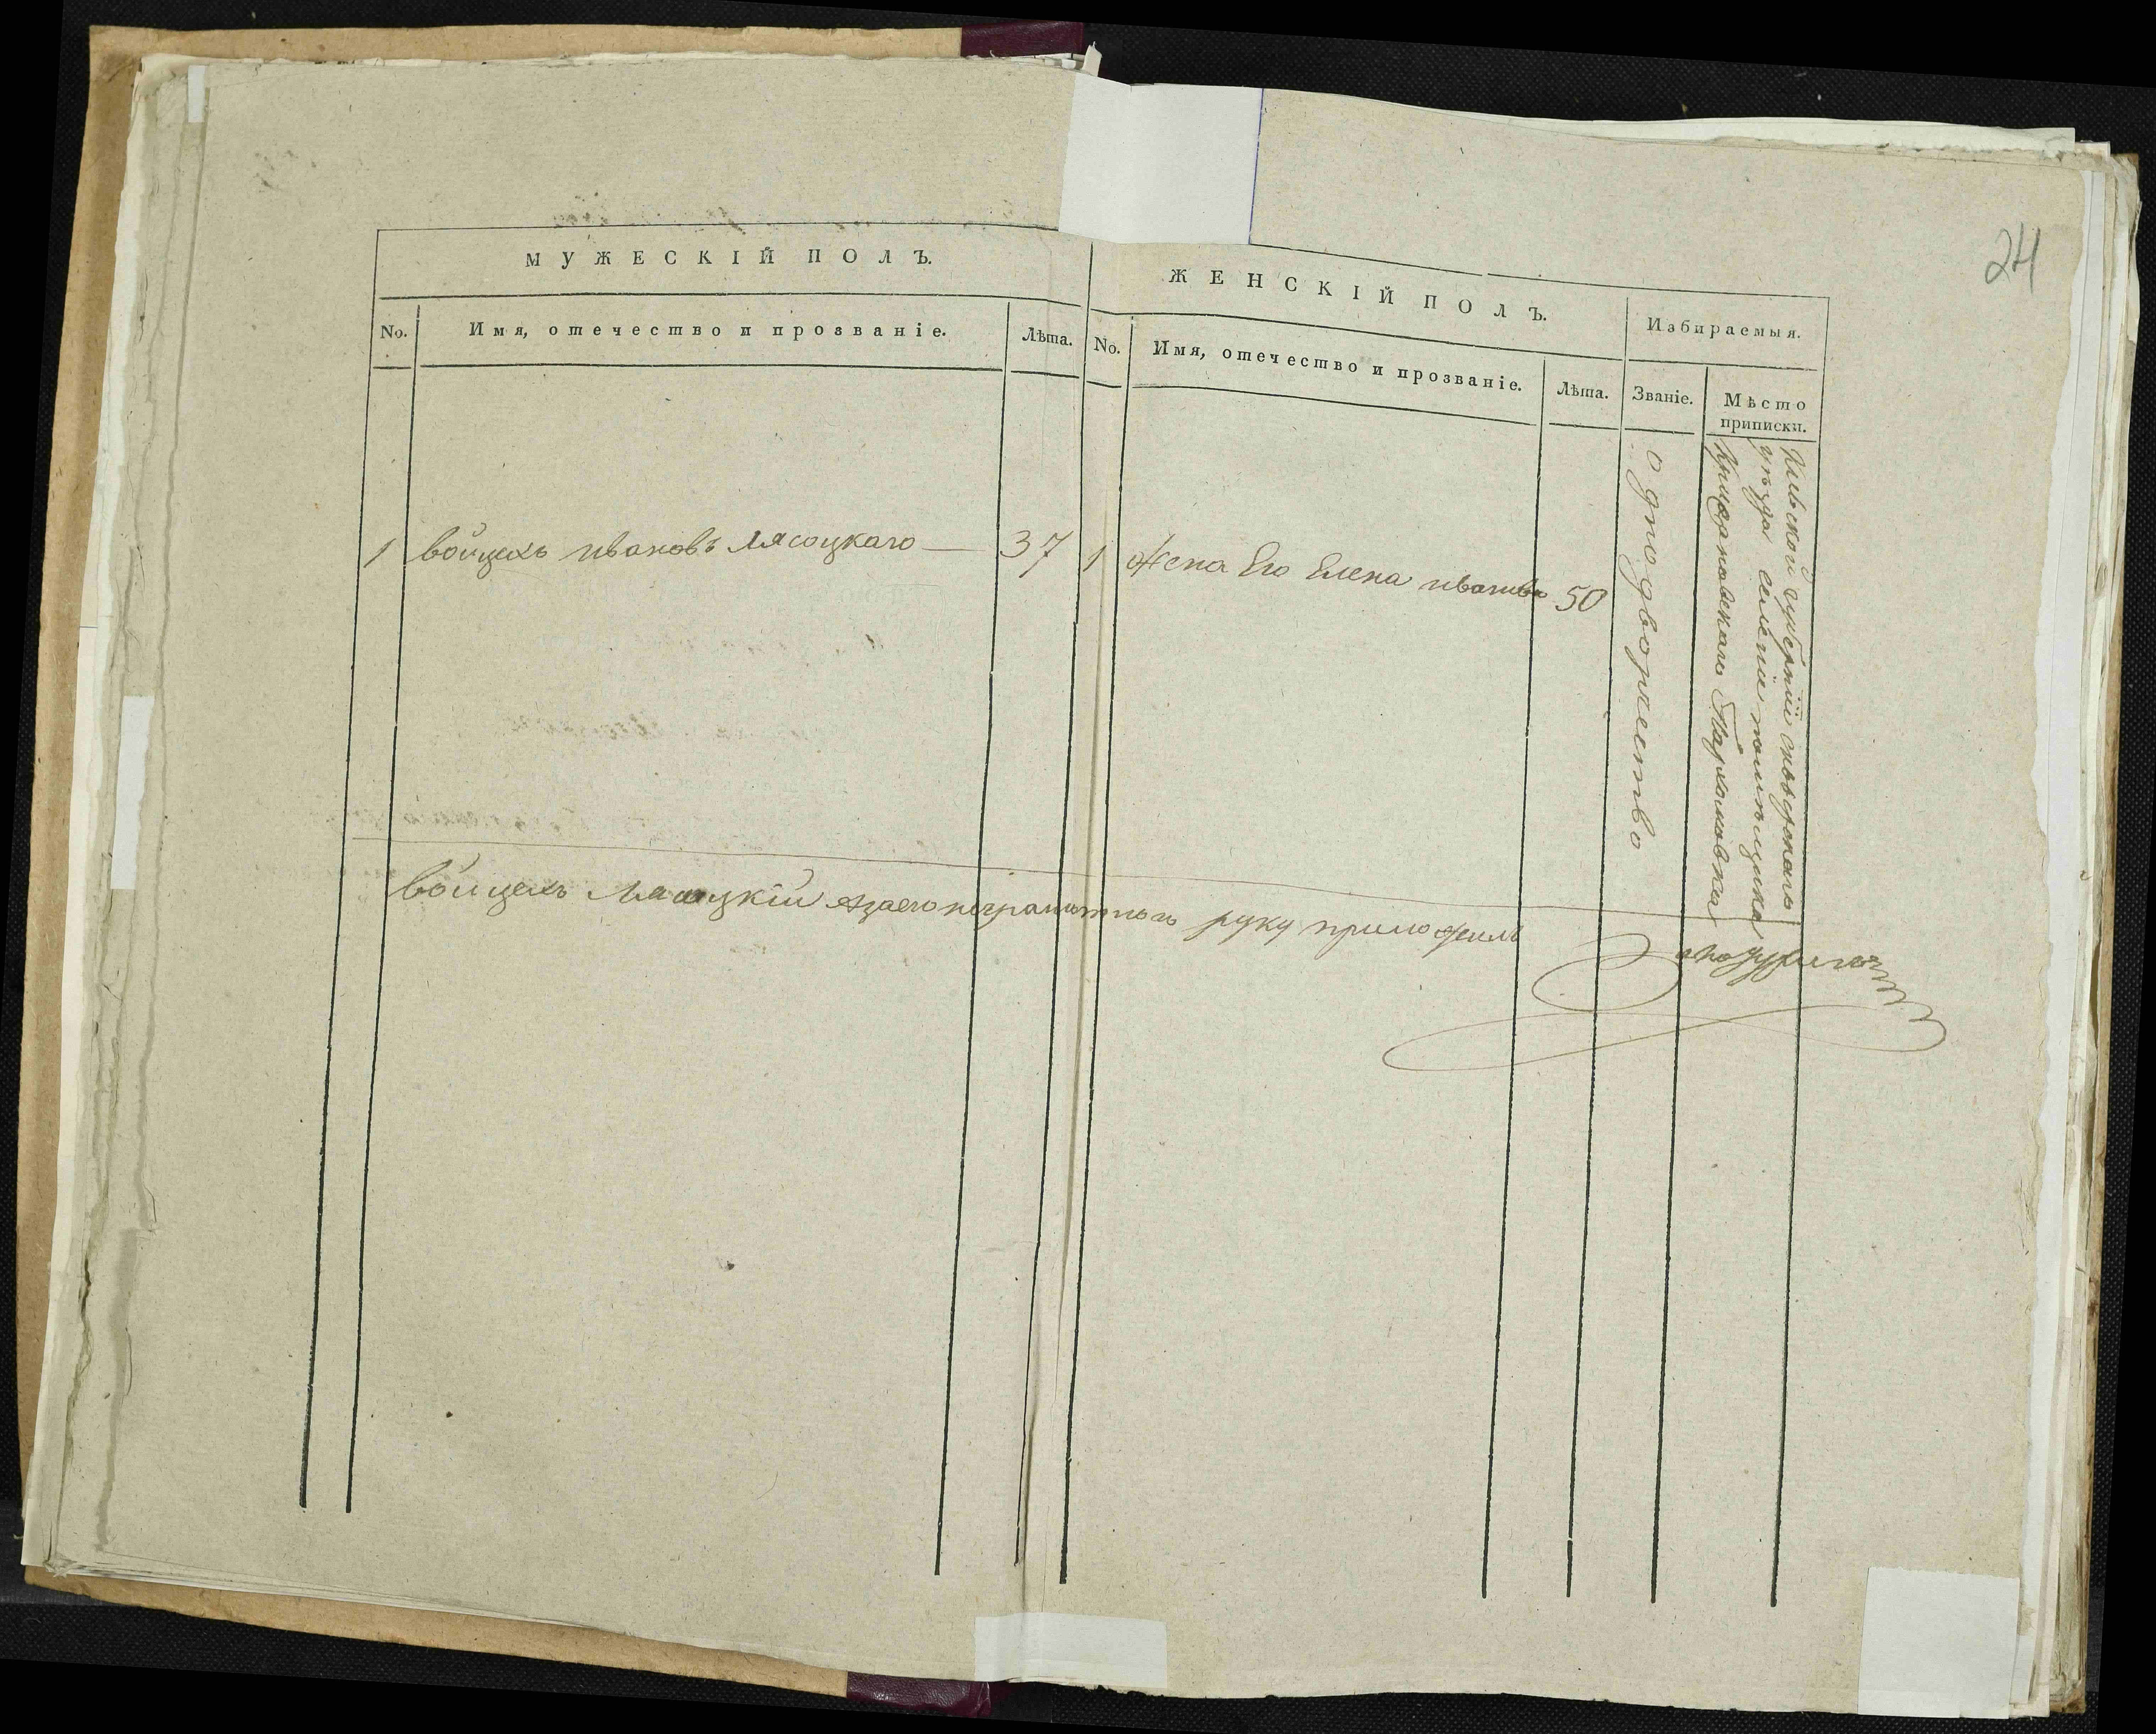 24
МУЖЕСКІЙ ПОЛЪ.
ЖЕНСКІЙ ПОЛЪ.
Избираемыя.
No.
Имя, отечество и прозваніе.
Лѣта.
No.
Имя, отечество и прозваніе.
Лѣта.
Званіе.
Мѣсто
приписки.
1 войцехъ ивановъ Лясоцкаго — 37
1 Жена Его Елена иванова 50
однодворчество
Кіевской губерніи сквирскаго
уезда селеніе помѣщика
Пархомовка
войцехъ Лясоцкій а за его неграмотного руку приложилъ